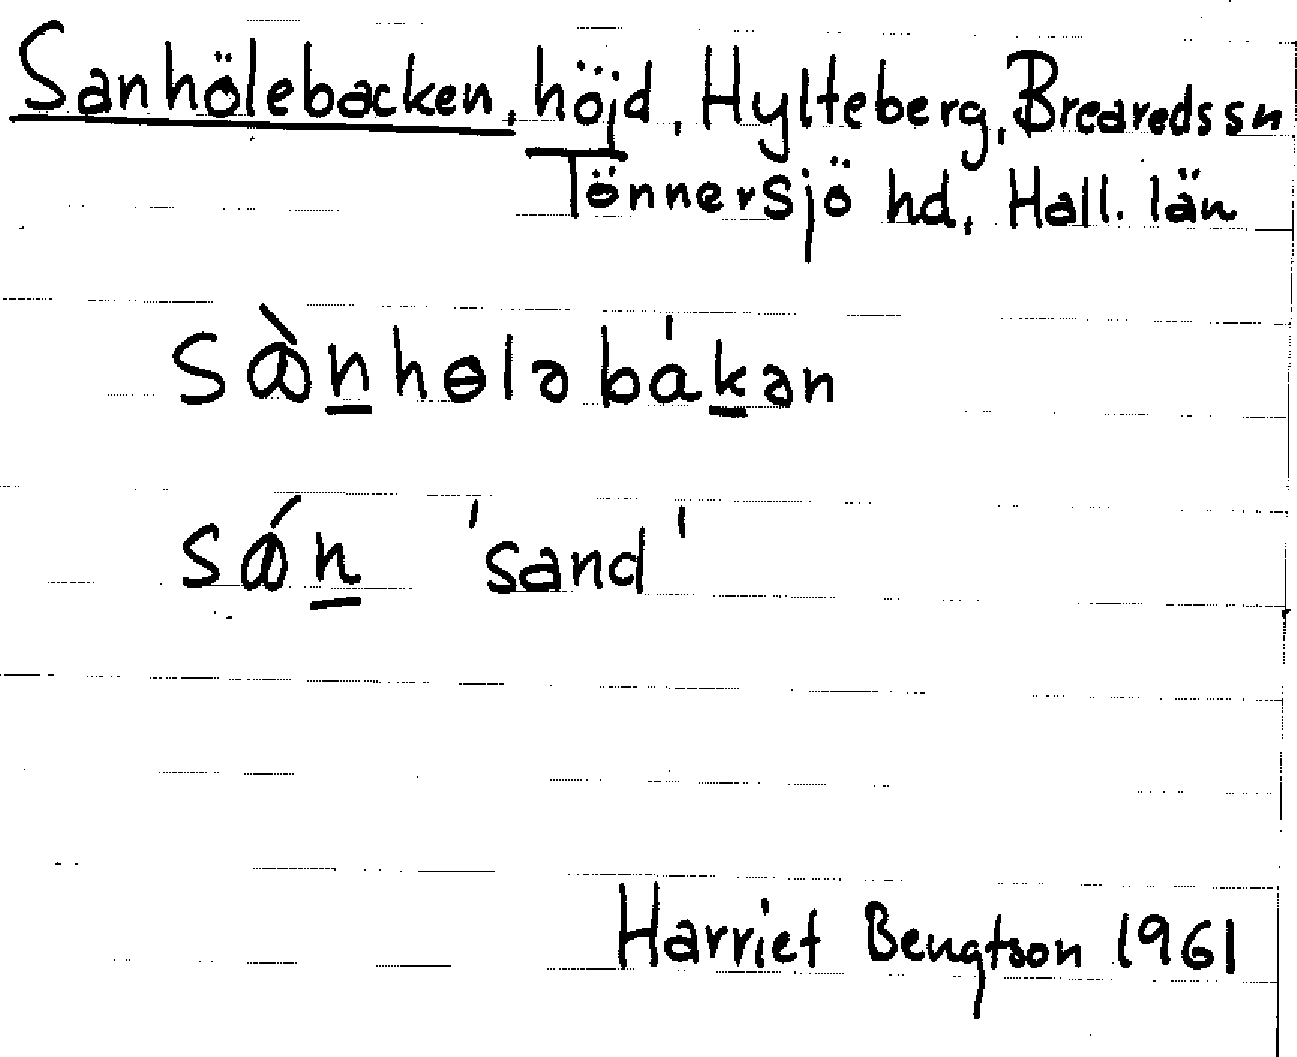 Sanhölebacken, höjd, Hylteberg, Breareds sn
Tönnersjö hd, Hall. län
sɑ̀n̲hɵləbák̲ən
sɑ́n̲ 'sand'
Harriet Bengtson 1961